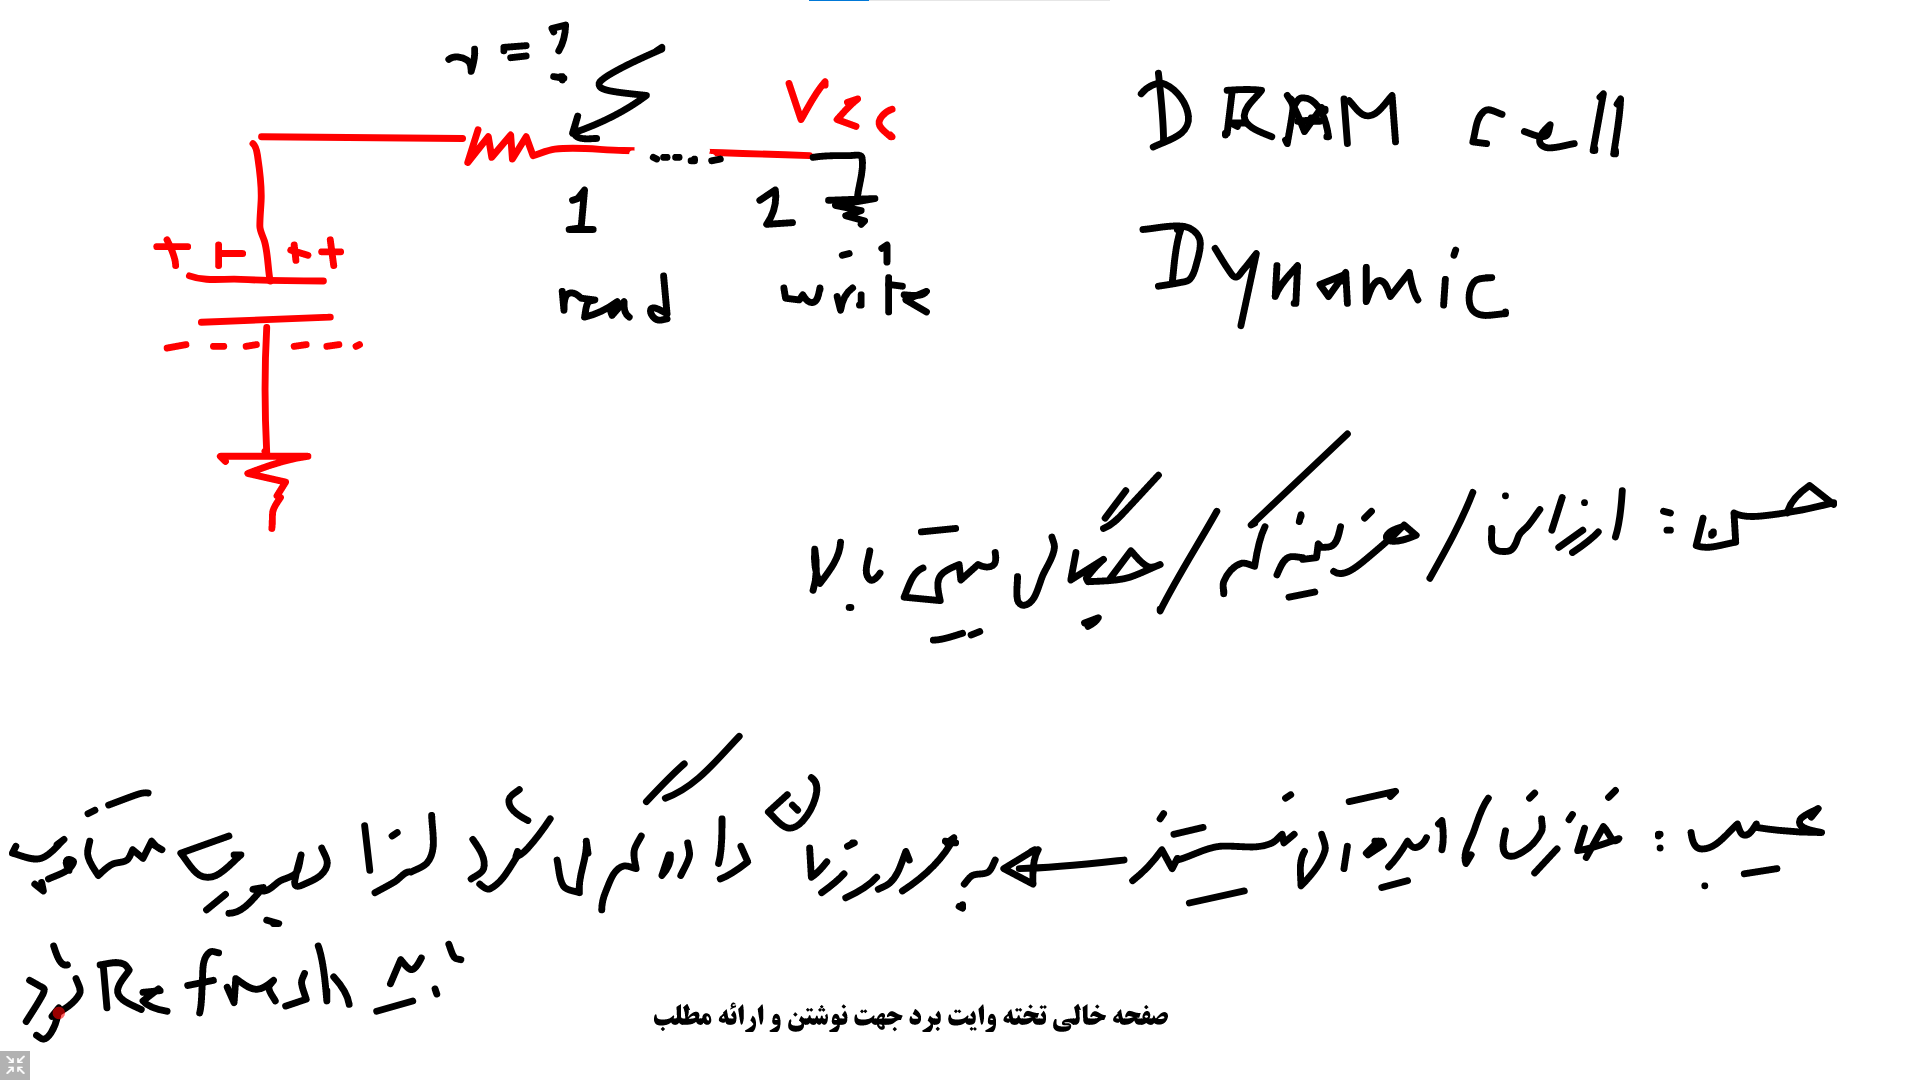 v = ?
Vcc
1
2
read
write
DRAM cell
Dynamic
حسن : ارزان / هزینه کم / چگالی بیتی بالا
عیب : خازن / ایده آل نیستند ← به مرور زمان داده گم می گردد لذا بصورت متناوب
باید Refresh شود
صفحه خالی تخته وایت برد جهت نوشتن و ارائه مطلب